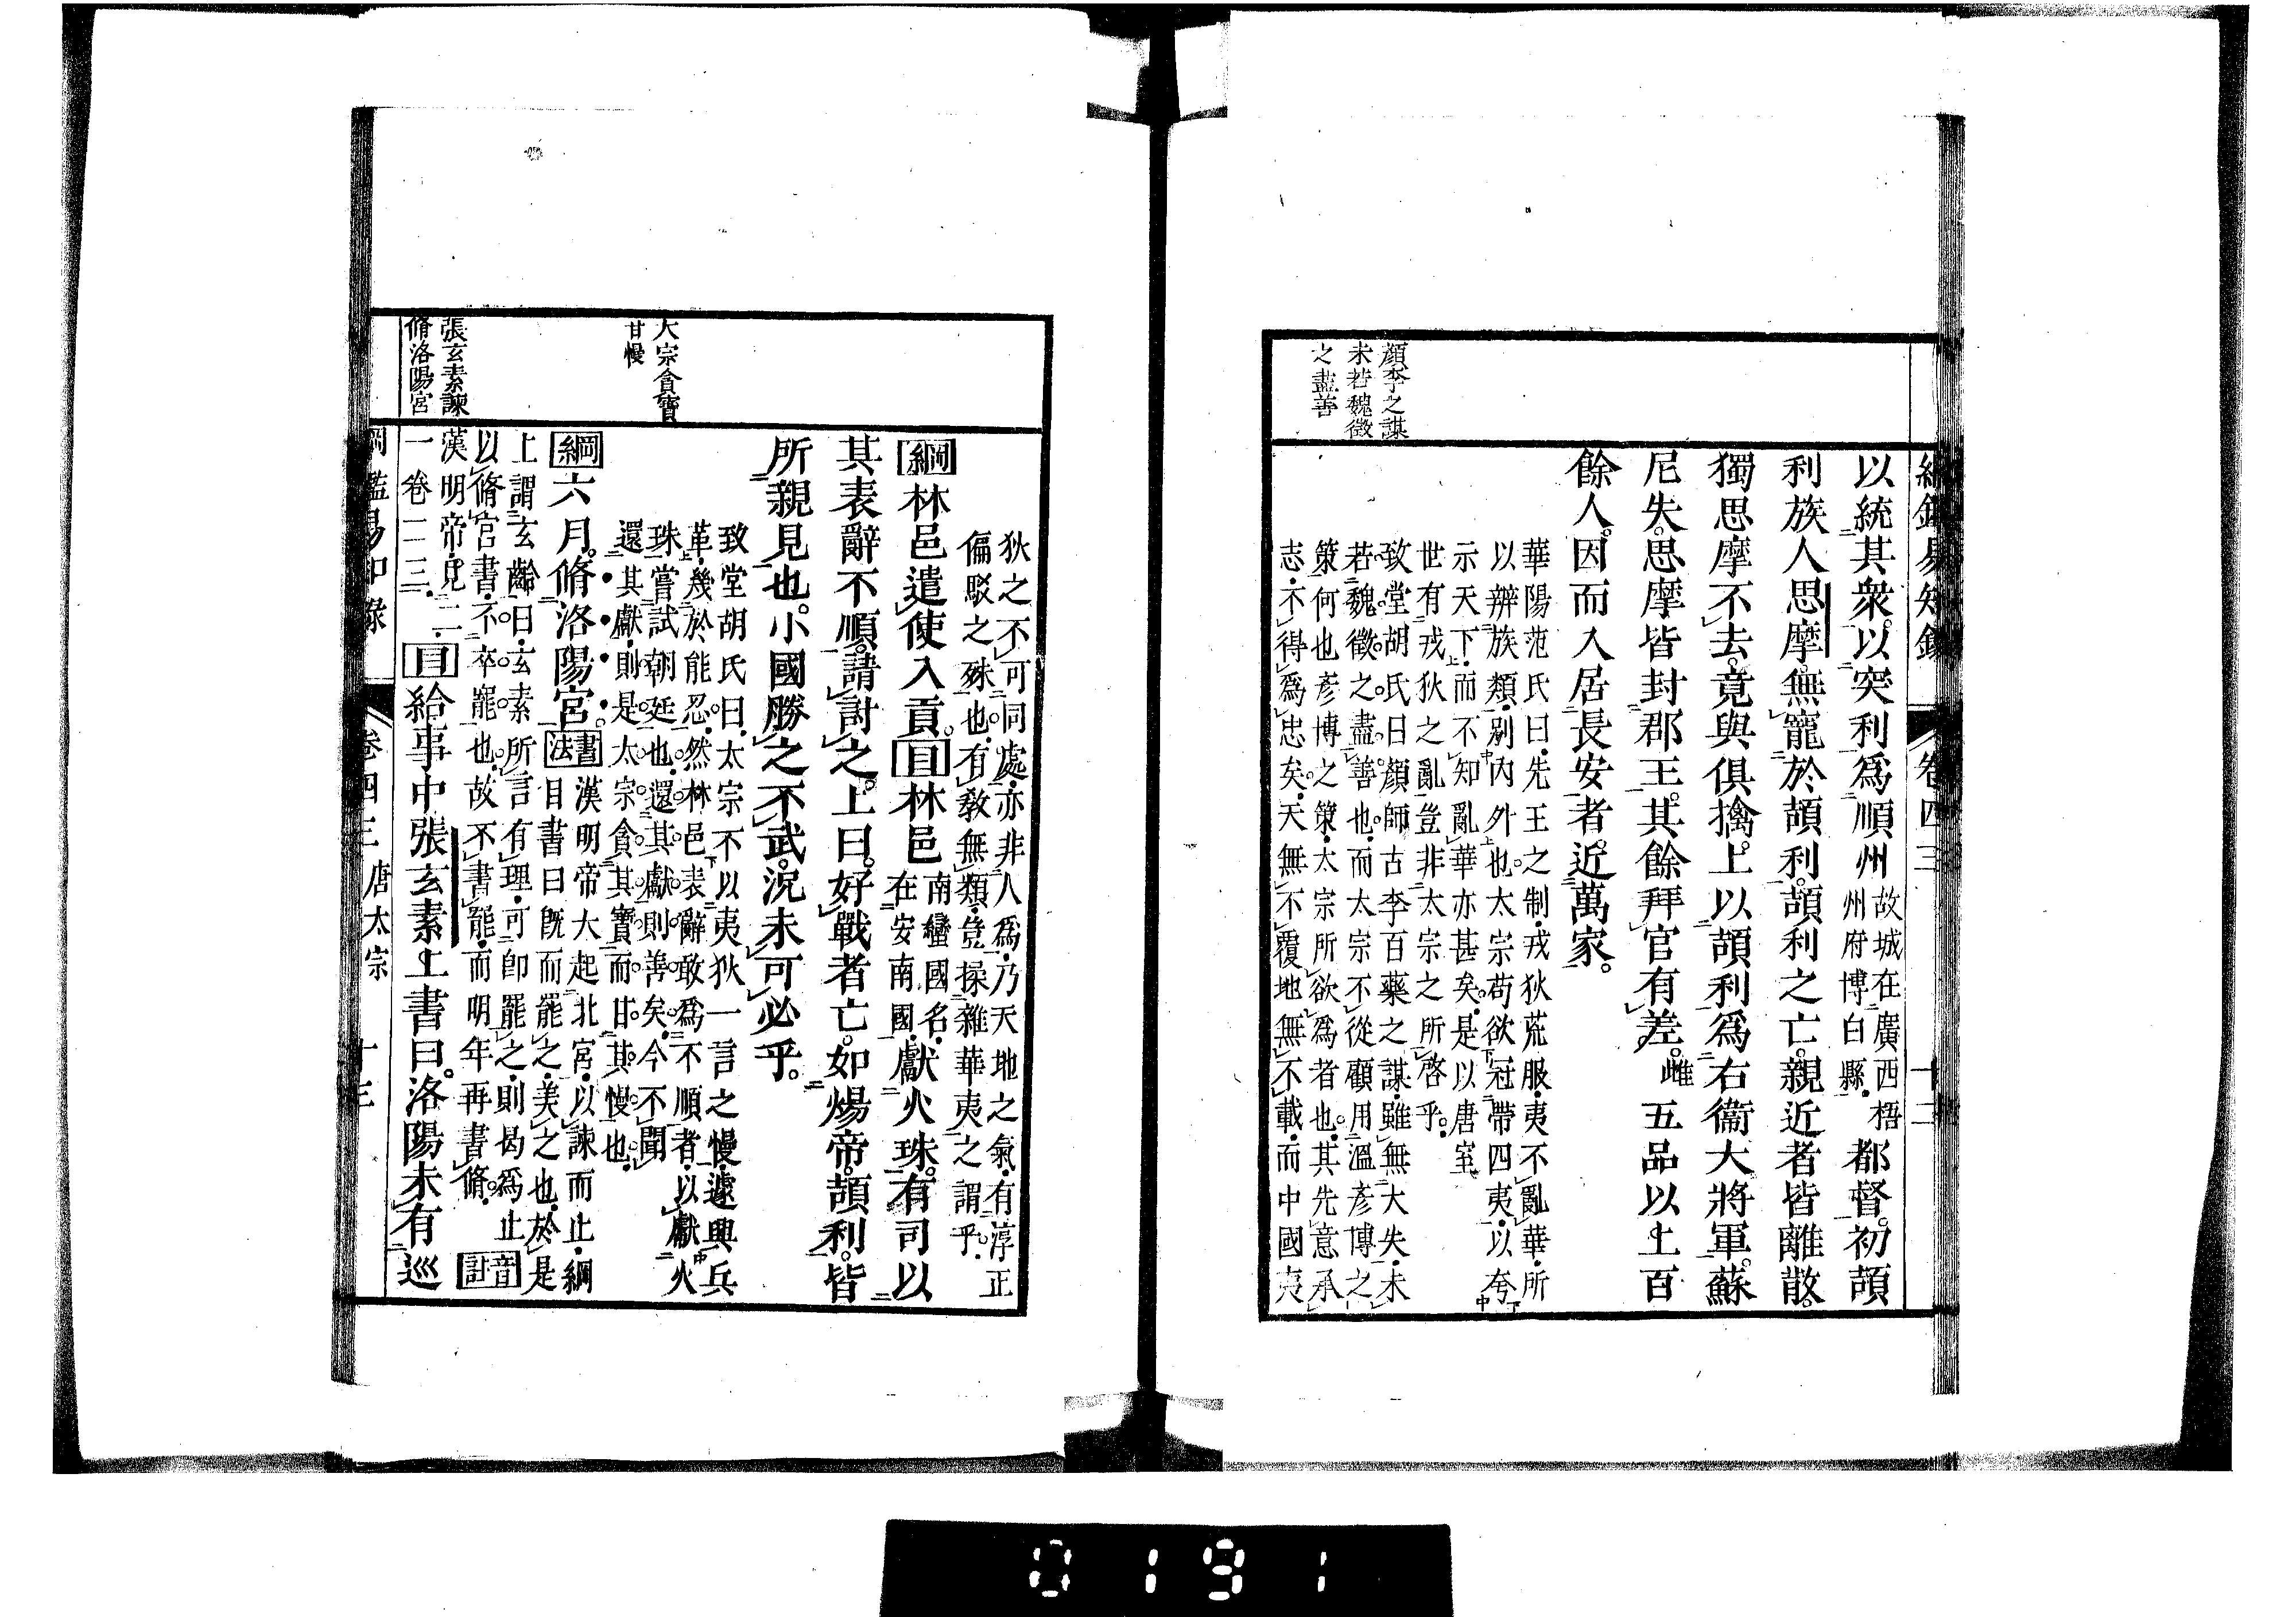 綱鑑易知錄　卷四三　十二
顏李之謀
未若魏徵
之盡善
以統其衆。以突利爲順州故城在廣西梧
州府博白縣．都督。初頡
利族人思摩。無寵於頡利。頡利之亡。親近者皆離散。
獨思摩不去。竟與俱擒。上以頡利爲右衞大將軍。蘇
尼失。思摩皆封郡王。其餘拜官有差。雌五品以上百
餘人。因而入居長安者。近萬家。
華陽范氏曰．先王之制．戎狄荒服．夷不亂華．所
以辨族類．別內外也。太宗苟欲冠帶四夷．以夸
示天下．而不知亂華亦甚矣．是以唐室
世有戎狄之亂．豈非太宗之所啓乎．
致堂胡氏曰．顏師古李百藥之謀．雖無大失．未
若魏徵之盡善也．而太宗不從．顧用溫彥博之
策．何也．彥博之策．太宗所欲爲者也．其先意承
志．不得爲忠矣．天無不覆．地無不載．而中國夷
狄之不可同處．亦非人爲．乃天地之氣．有淳正
偏駁之殊也．有敎無類．豈操雜華夷之謂乎．
綱林邑遣使入貢。目林邑南蠻國名．
在安南國．獻火珠。有司以
其表辭不順。請討之。上曰。好戰者亡。如煬帝。頡利。皆
所親見也。小國勝之不武。況未可必乎。
大宗貪寶
甘慢
致堂胡氏曰．太宗不以夷狄一言之慢．遽興兵
革．幾於能忍．然林邑表辭敢爲不順者．以獻火
珠．嘗試朝廷也．還其獻．則善矣．今不聞
還其獻．則是太宗貪其寶．而甘其慢也．
綱六月。脩洛陽宮。書法漢明帝大起北宮．以諫而止．綱
目書曰旣而罷之．美之也．於是
上謂玄齡曰．玄素所言有理．可卽罷之．則曷爲止
以脩宮書．不卒罷也．故不書罷．而明年再書脩．音註
漢明帝．見二．
一卷二三．目給事中張玄素上書曰。洛陽未有巡
張玄素諫
脩洛陽宮
綱鑑易知錄　卷四三　唐太宗　十三
0191